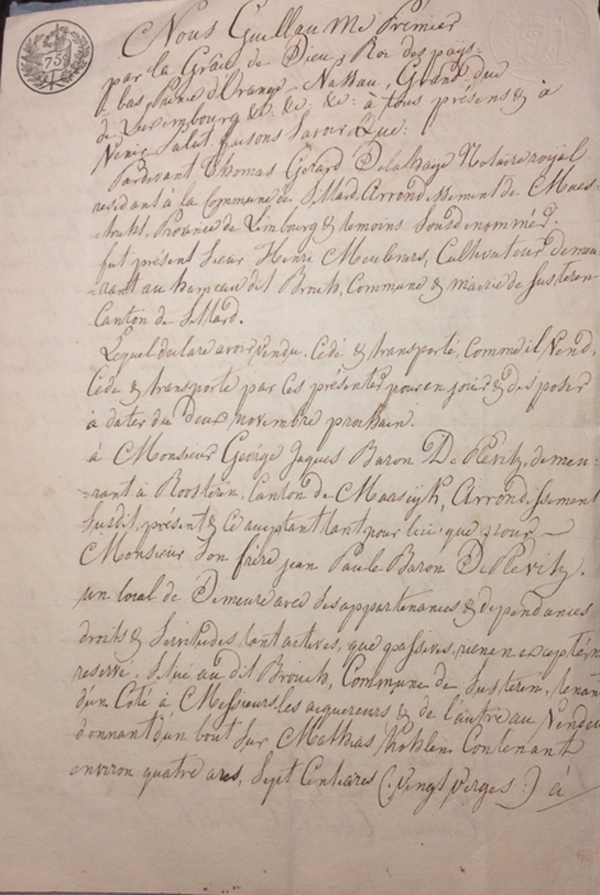 75
Nous Guillaume Premier
par la Grâce de Dieu, Roi des pays-
bas, Prince d'Orange-Nassau, Grand duc
de Luxembourg &. &. &. à tous présens & à
Venir Salut, faisons Savoir Que:
Pardevant Thomas Gerard Delahaye Notaire royal
residant à la Commune de Sittard Arrondissement de Maes-
-tricht, Province de Limbourg & temoins Sousdenommés.
fut présent Sieur Henri Meulenars, Cultivateur demeu-
-rant au hameau dit Brouch, Commune & mairie de Susteren
Canton de Sittard.
Lequel declare avoir Vendu, Cédé & transporté, Comme il Vend,
Cède & transporte par ces présentes pour en jouir & disposer
à dater du deux novembre prochain.
à Monsieur George Jaques Baron De Plevitz, demeu-
-rant à Roosteren, Canton de Maaseyk, Arrondissement
Susdit, présent & Ce acceptant tant pour lui que pour
Monsieur Son frère jean Paul Baron De Plevitz.
un local de Demeure avec Ses appartenances & dependances
droits & Servitudes tant actives, que passives, rien en excepté ni
reservé, Situé au dit Brouch, Commune de Susteren, tenant
d'un Coté à Messieurs les acquereurs & de l'autre au Vendeur
donnant d'un bout Sur Mathias Contenant
environ quatre ares, Sept Centiares (:Vingt Verges:) à